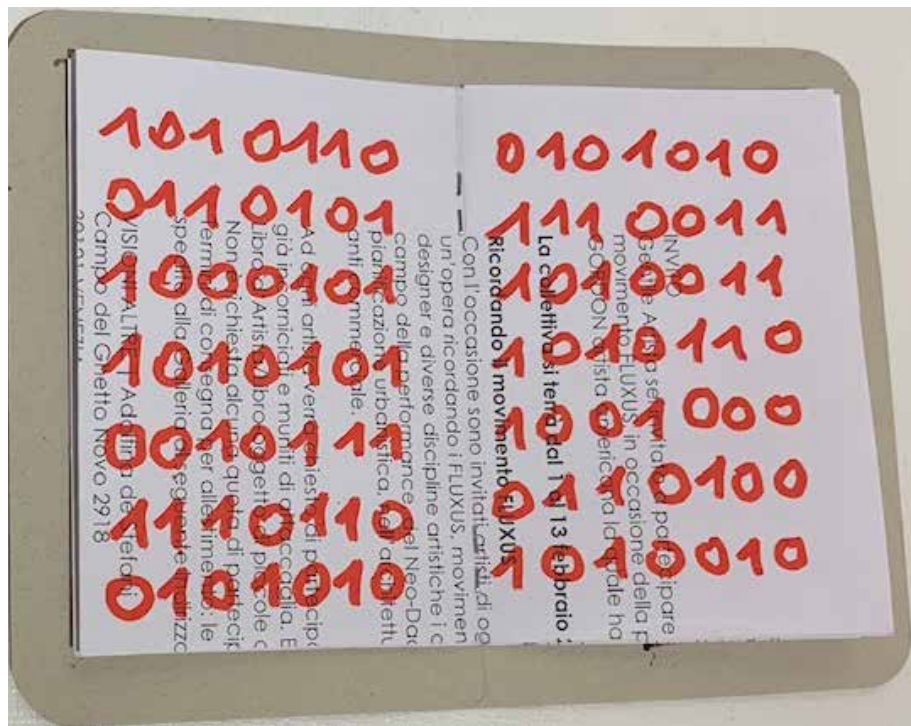 101 0110
011 0101
1000101
1010101
0010111
1110110
0101010
0101010
111 0011
1010011
1010110
1001000
0110100
1010010
INVITO
Gentile Artista sei invitato a partecipare
movimento FLUXUS, in occasione della
artista americana la quale ha
La collettiva si terrà dal 1 al 13 febbraio
Ricordando il movimento FLUXUS
Con l'occasione sono invitati artisti di
un'opera ricordando i FLUXUS, movimen
designer e diverse discipline artistiche i
campo della performance, del Neo-Dad
pianificazione urbanistica, nell'architettu
anti-commerciale.
Ad ogni artista verrà chiesto di partecipa
già incorniciati e muniti di attaccaglia. E
Libro d'Artista/Libro oggetto di piccole
Non è richiesta alcuna quota di partecip
Termine di consegna per allestimento: le
spedite alla Galleria al seguente indirizzo
VISIONI ALTRE Adolfina de Stefani
Campo del Ghetto Novo 2918
VENEZIA